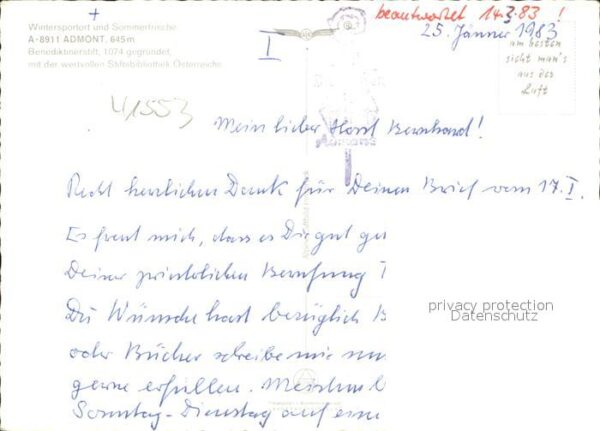 beantwortet 14.3.83 !
Wintersportort und Sommerfrische
A-8911 ADMONT, 645 m
Benediktinerstift, 1074 gegründet,
mit der wertvollen Stiftsbibliothek Österreichs
I
25. Jänner 1983
am besten
sieht man's
aus der
Luft
41553
Mein lieber Horst Bernhard!
Recht herzlichen Dank für Deinen Brief vom 17. I.
Es freut mich, dass es Dir gut
Deiner priesterlichen Berufung
Du Wünsche hast bezüglich
oder Bücher schreibe mir
gerne erfüllen.
Sonntag - Dienstag auf
privacy protection
Datenschutz